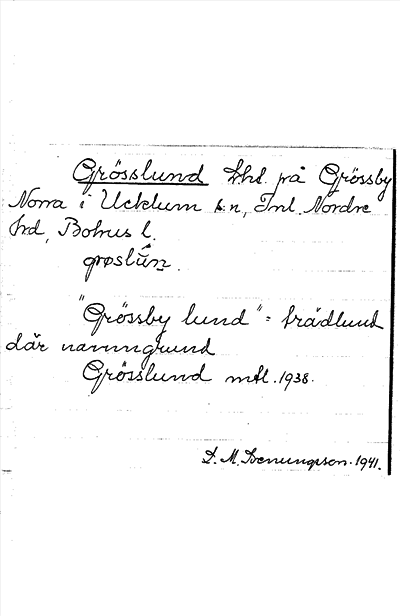 Grösslund lht. på Grössby
Norra i Ucklum s:n, Inl. Nordre
hrd, Bohus l.
grøslún.
"Grössby lund" = trädlund
där namngrund
Grösslund mtl. 1938.
D. M. 1941.